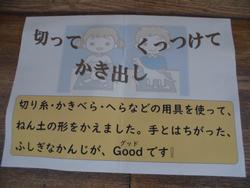 切って　くっつけて
かき出し
切り糸・かきべら・へらなどの用具を使って、
ねん土の形をかえました。手とはちがった、
ふしぎなかんじが、Goodです
グッド